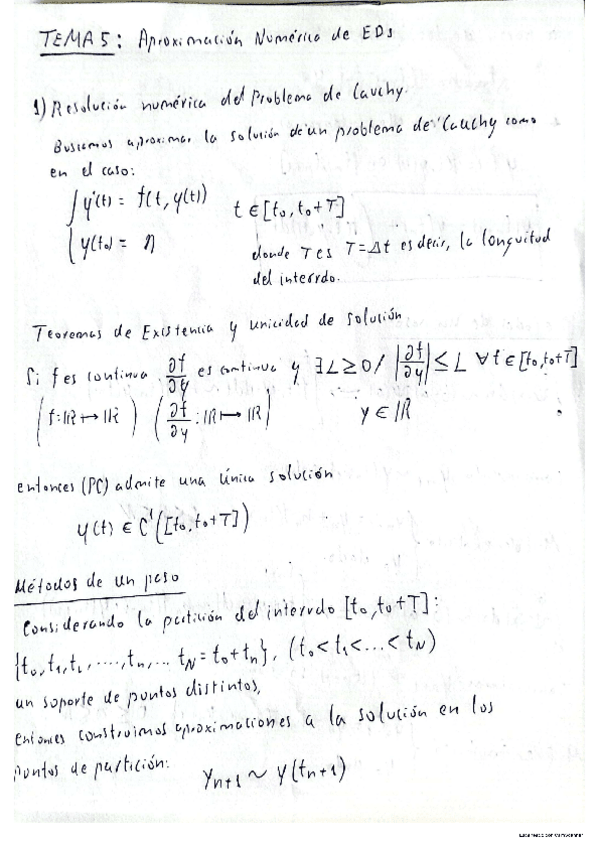 TEMA 5: Aproximación Numérica de EDs
1) Resolución numérica del Problema de Cauchy.
Buscamos aproximar la solución de un problema de Cauchy como
en el caso:
{ y'(t) = f(t, y(t))   t ∈ [t₀, t₀+T]
{ y(t₀) = η
donde T es T = Δt es decir, la longuitud
del intervalo.
Teoremas de Existencia y unicidad de solución
Si f es continua ∂f/∂y es continua y ∃L≥0 / |∂f/∂y| ≤ L ∀t ∈ [t₀, t₀+T]
(f: ℝ ↦ ℝ) (∂f/∂y : ℝ ↦ ℝ)   y ∈ ℝ
entonces (PC) admite una única solución
y(t) ∈ C¹([t₀, t₀+T])
Métodos de un paso
Considerando la partición del intervalo [t₀, t₀+T]:
{t₀, t₁, t₂, ....., tₙ, ... t_N = t₀+tₙ}, (t₀ < t₁ < ... < t_N)
un soporte de puntos distintos,
Entonces construimos aproximaciones a la solución en los
puntos de partición:
yₙ₊₁ ~ y(tₙ₊₁)